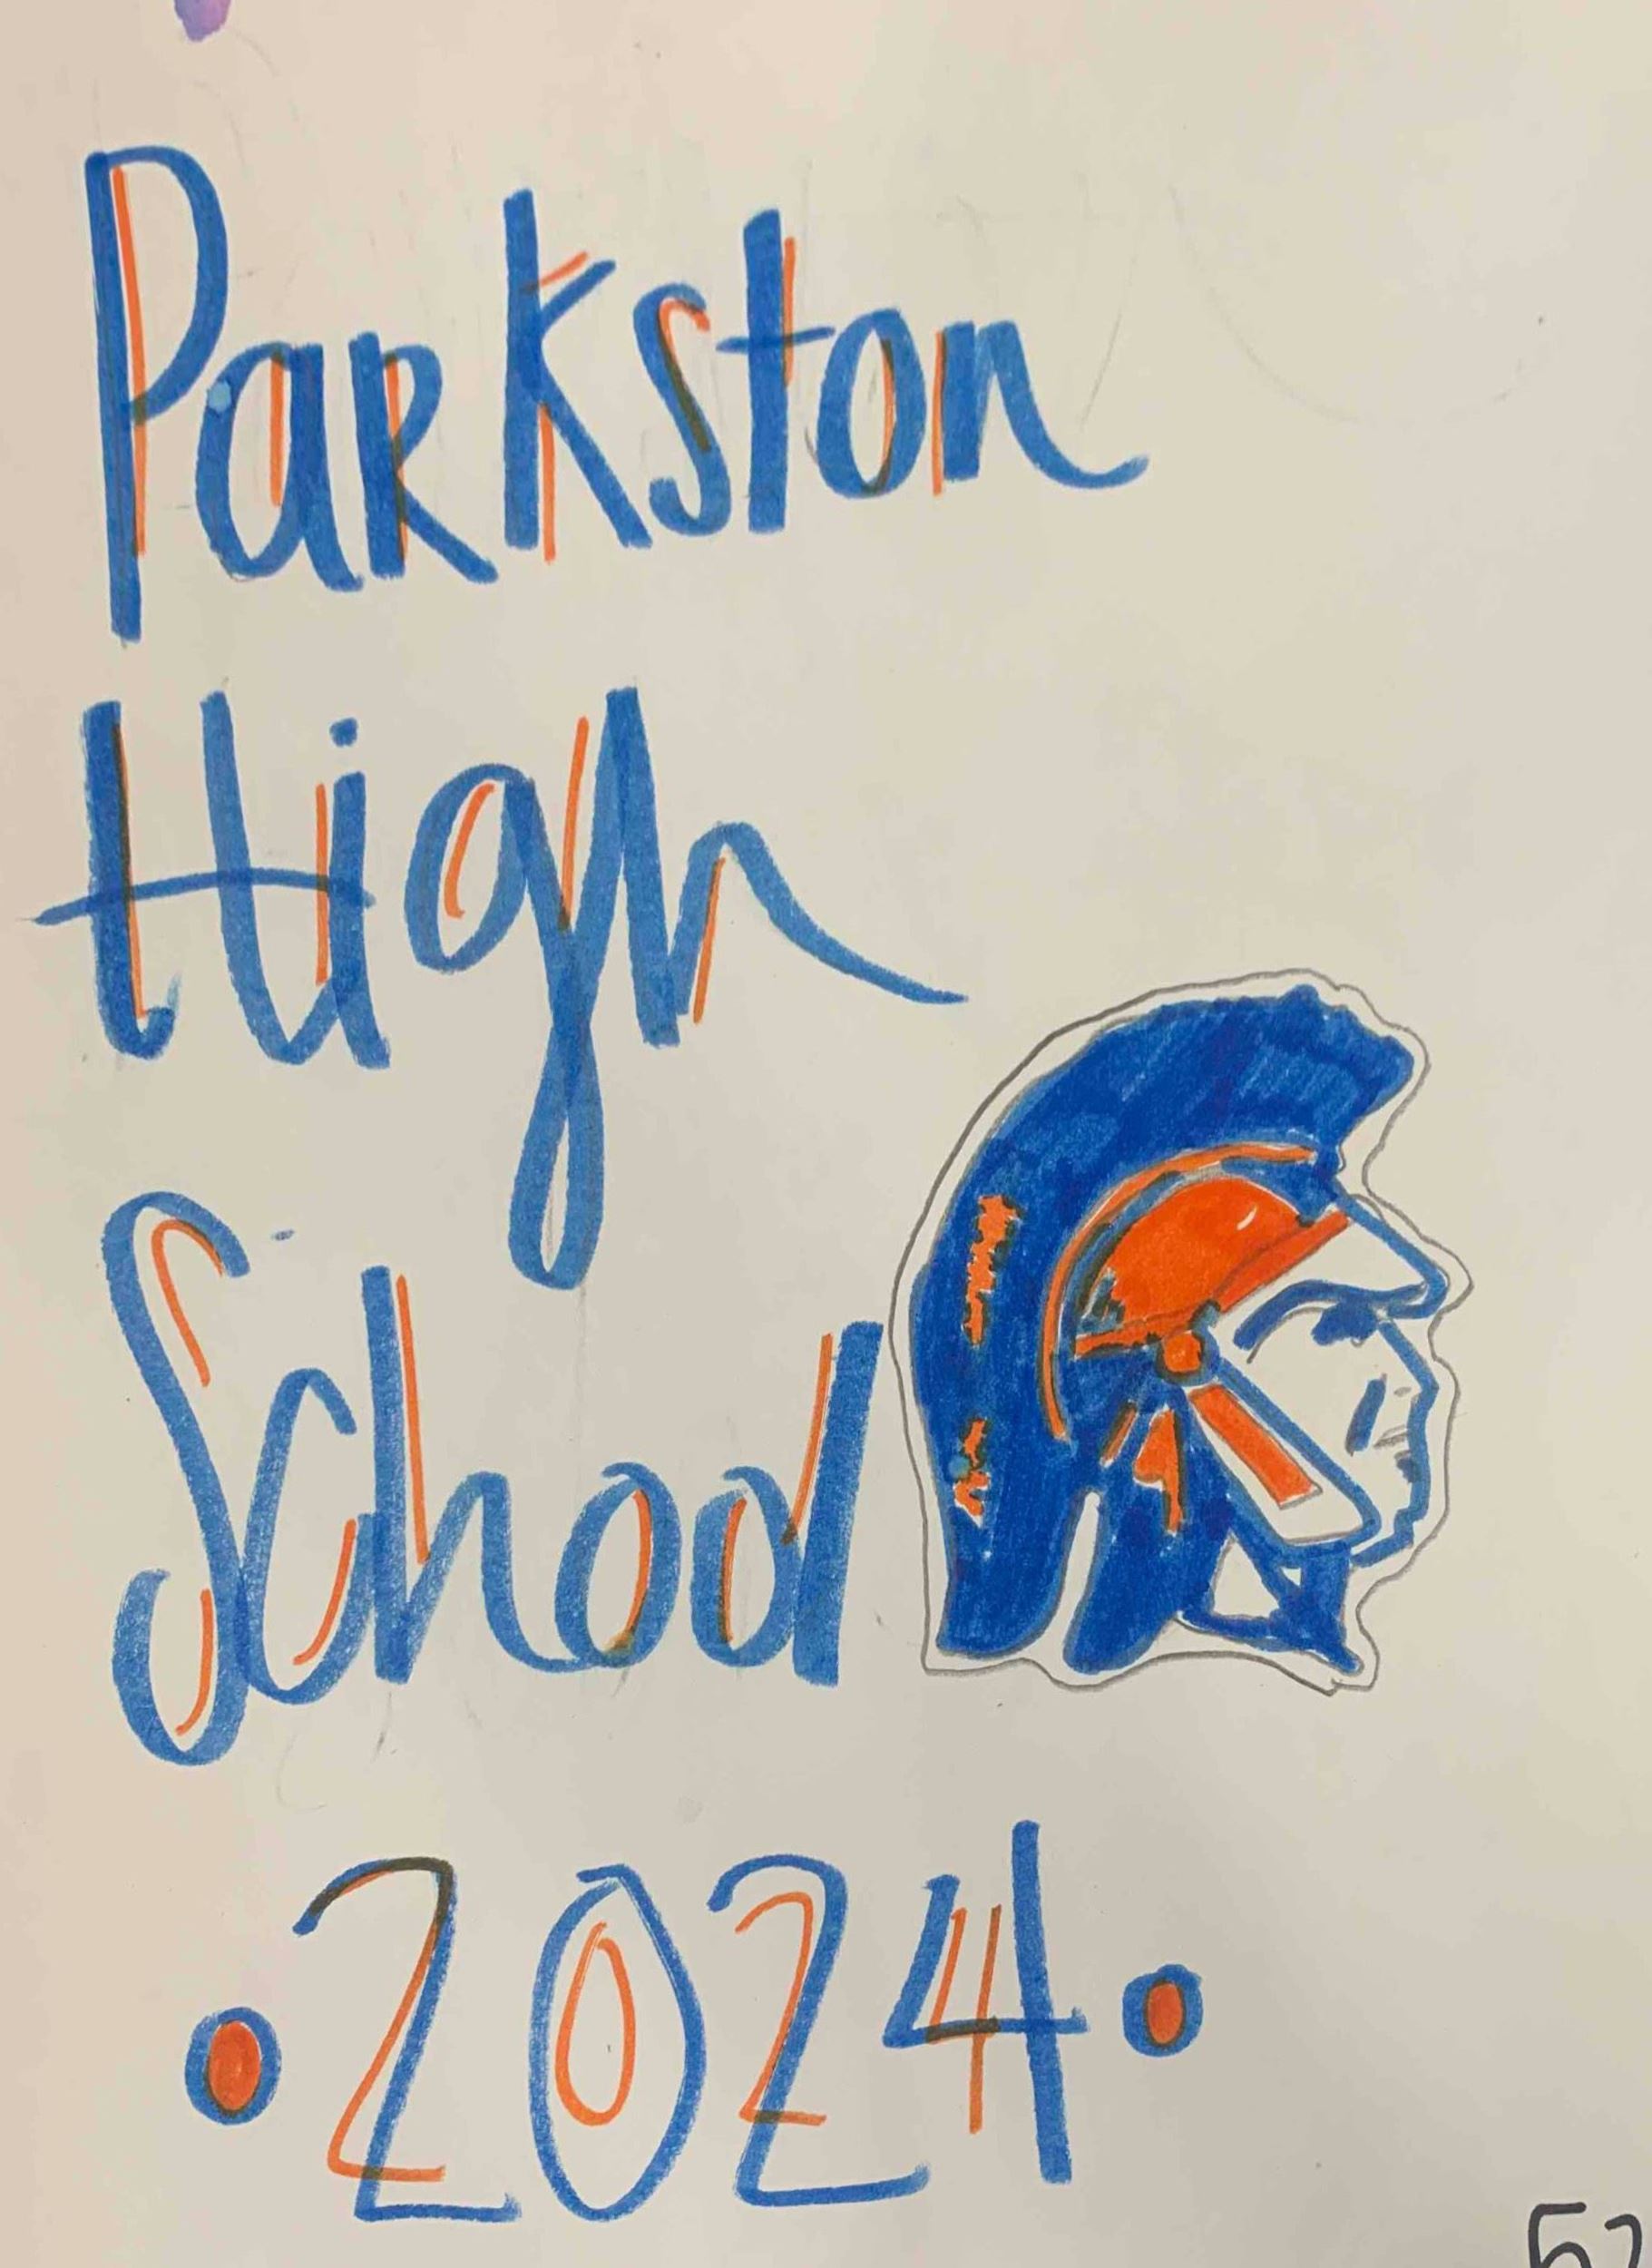 Parkston
High
School
•2024•